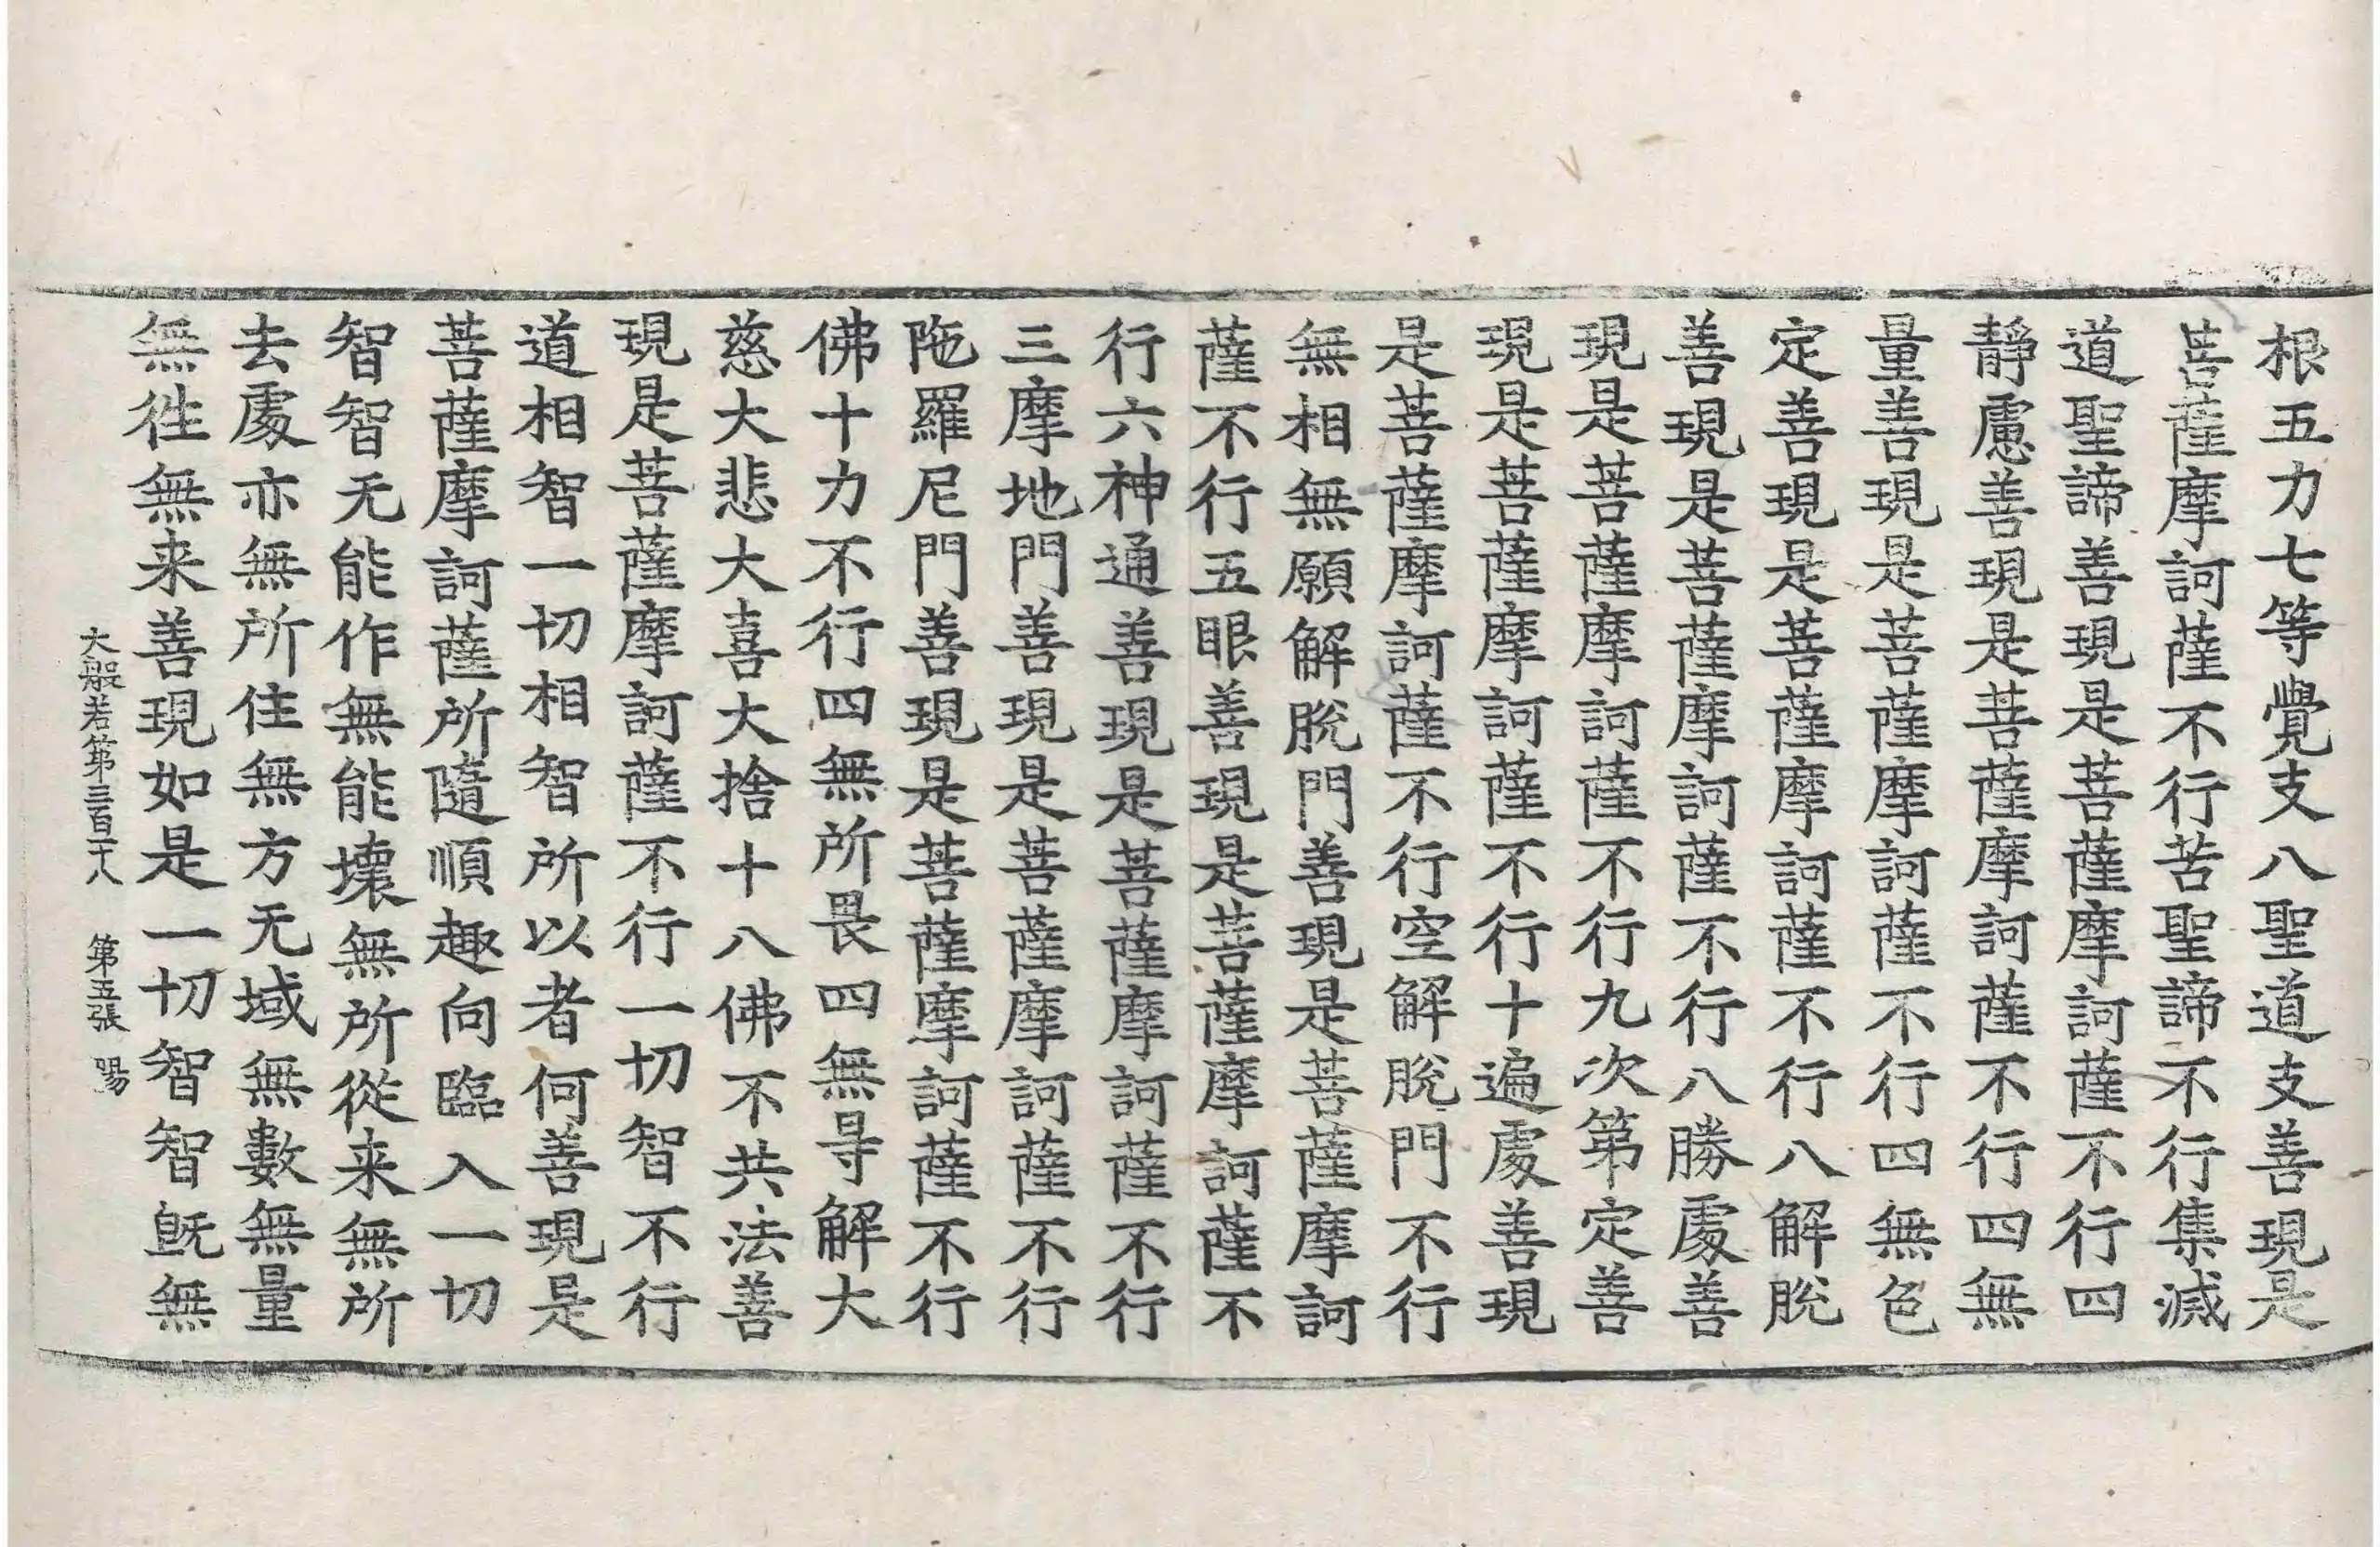 根五力七等覺支八聖道支善現是
菩薩摩訶薩不行苦聖諦不行集滅
道聖諦善現是菩薩摩訶薩不行四
靜慮善現是菩薩摩訶薩不行四無
量善現是菩薩摩訶薩不行四無色
定善現是菩薩摩訶薩不行八解脫
善現是菩薩摩訶薩不行八勝處善
現是菩薩摩訶薩不行九次第定善
現是菩薩摩訶薩不行十遍處善現
是菩薩摩訶薩不行空解脫門不行
無相無願解脫門善現是菩薩摩訶
薩不行五眼善現是菩薩摩訶薩不
行六神通善現是菩薩摩訶薩不行
三摩地門善現是菩薩摩訶薩不行
陁羅尼門善現是菩薩摩訶薩不行
佛十力不行四無所畏四無㝵解大
慈大悲大喜大捨十八佛不共法善
現是菩薩摩訶薩不行一切智不行
道相智一切相智所以者何善現是
菩薩摩訶薩所隨順趣向臨入一切
智智无能作無能壞無所從来無所
去處亦無所住無方无域無數無量
無徃無来善現如是一切智智旣無
大般若第三百二十八 第五張 陽